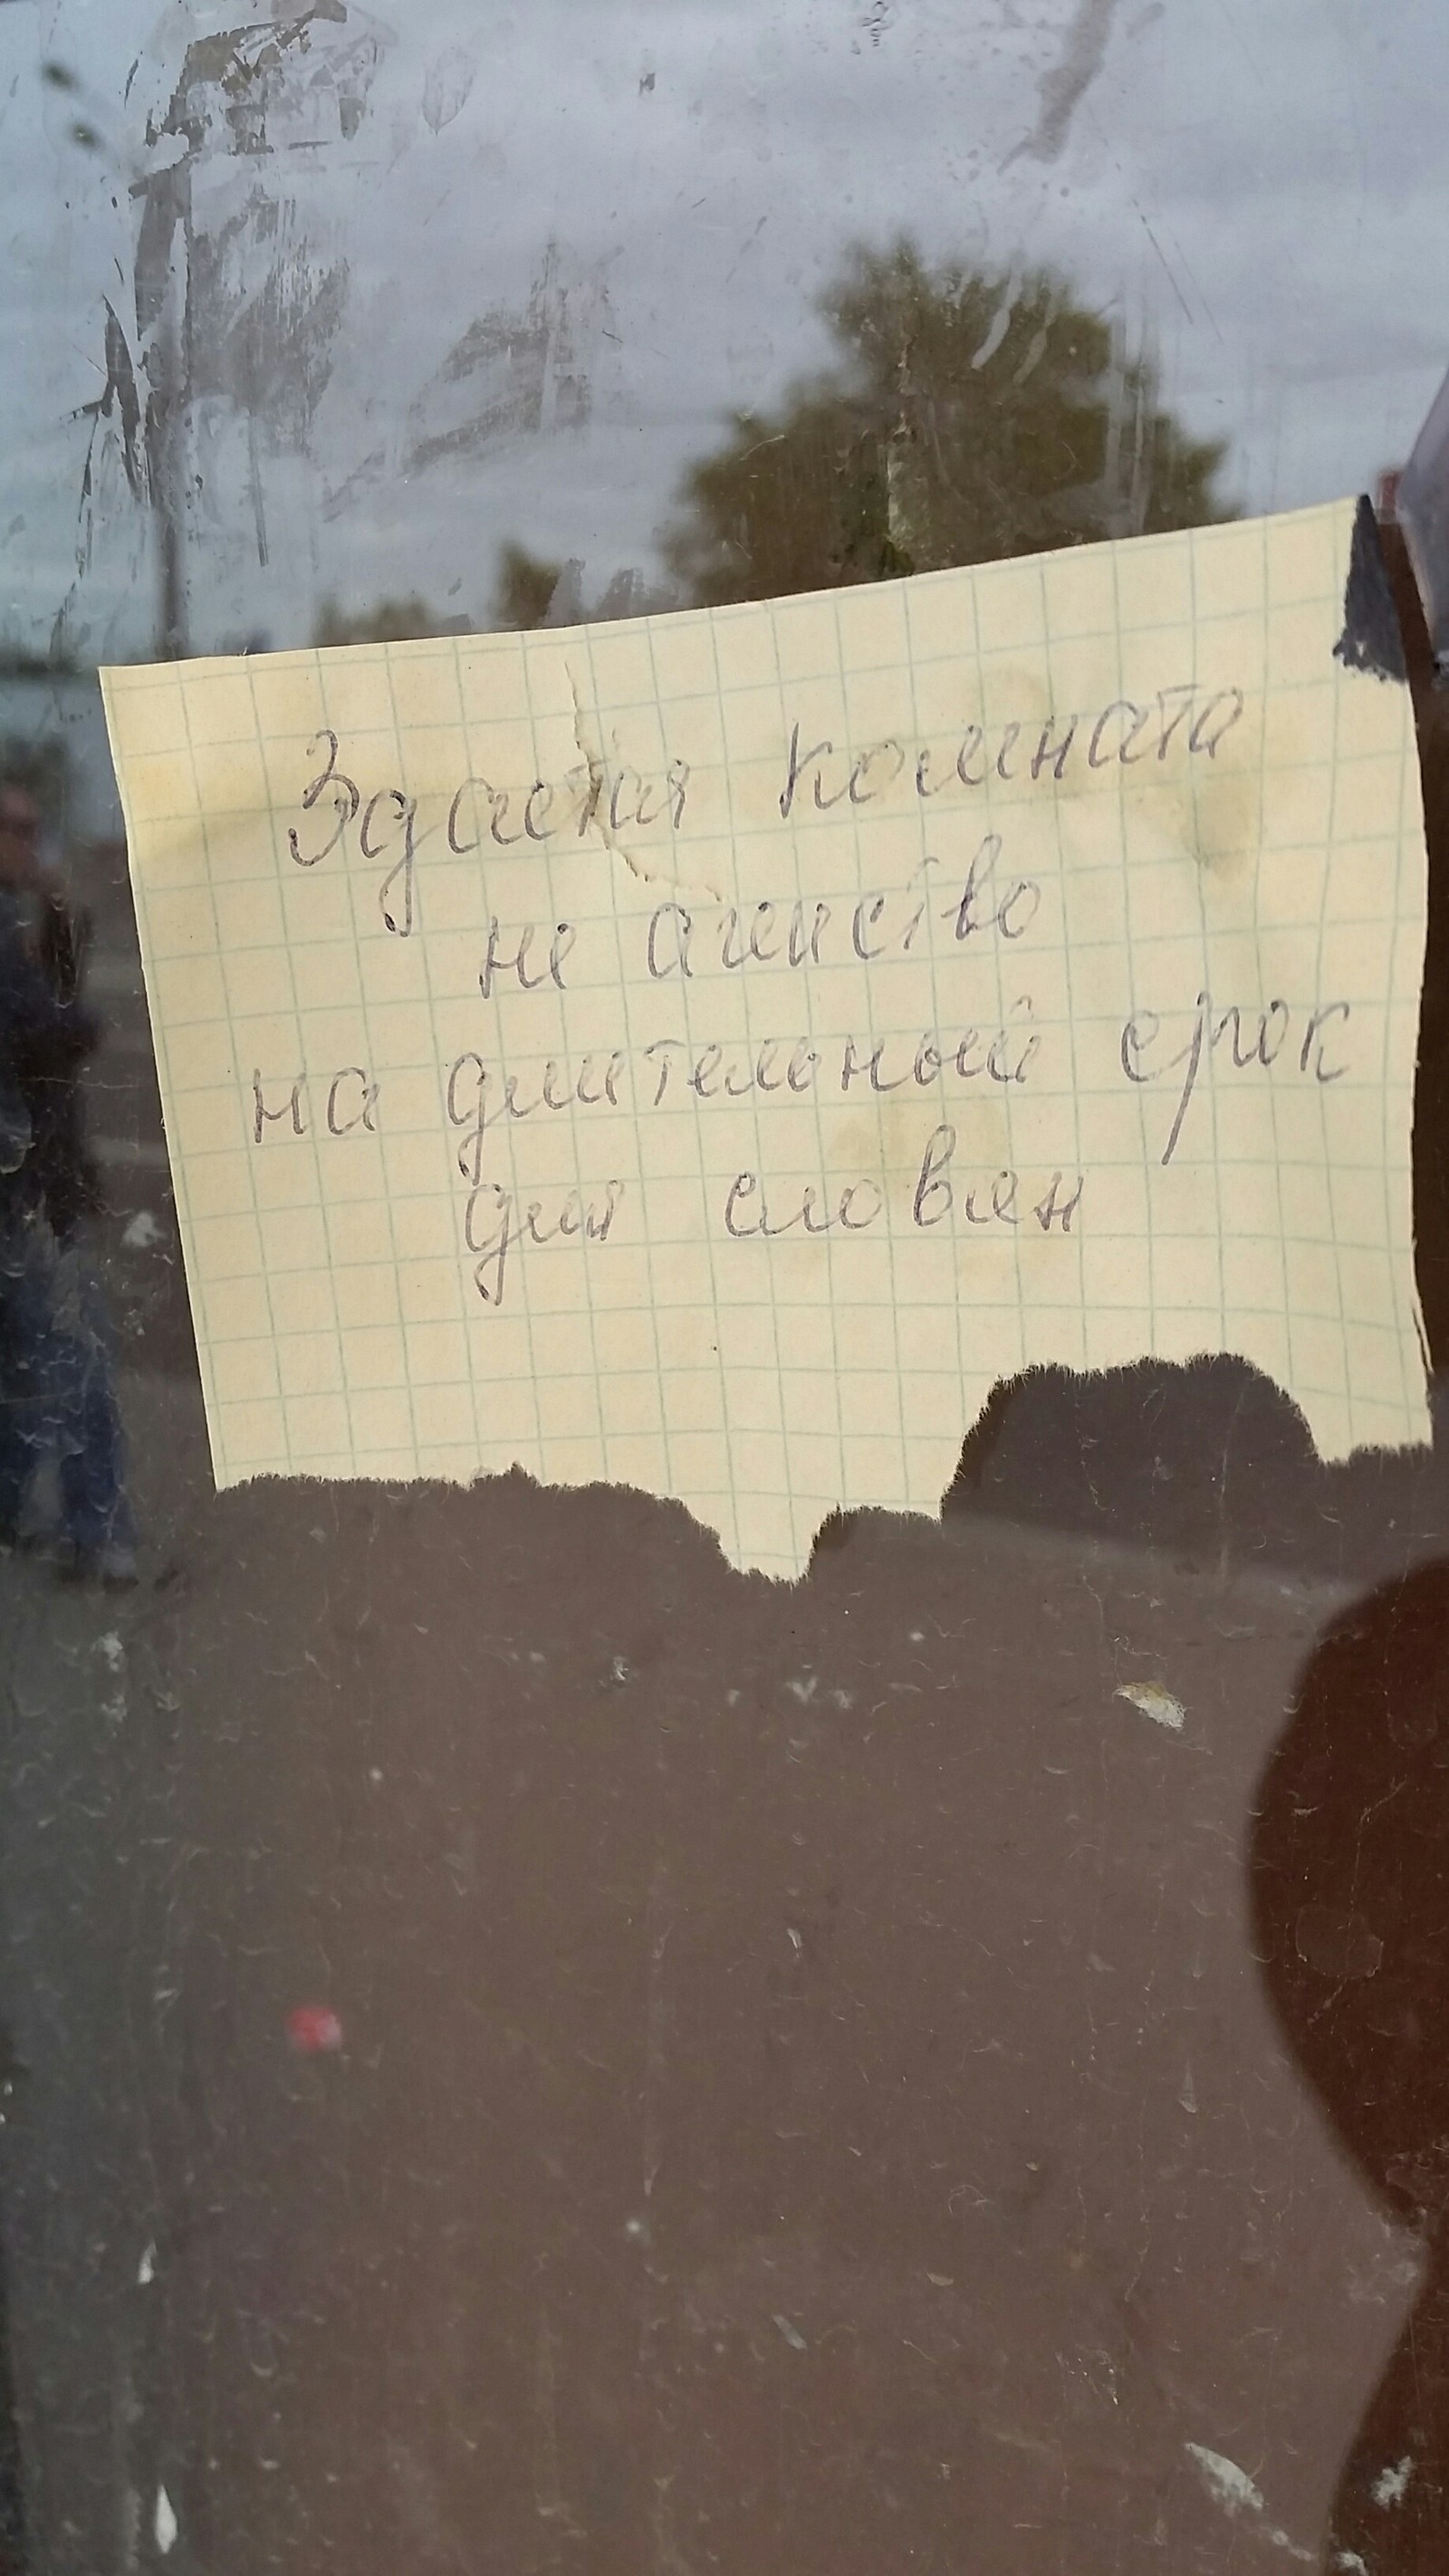 Здается комната
не агенство
на длительный срок
для словян